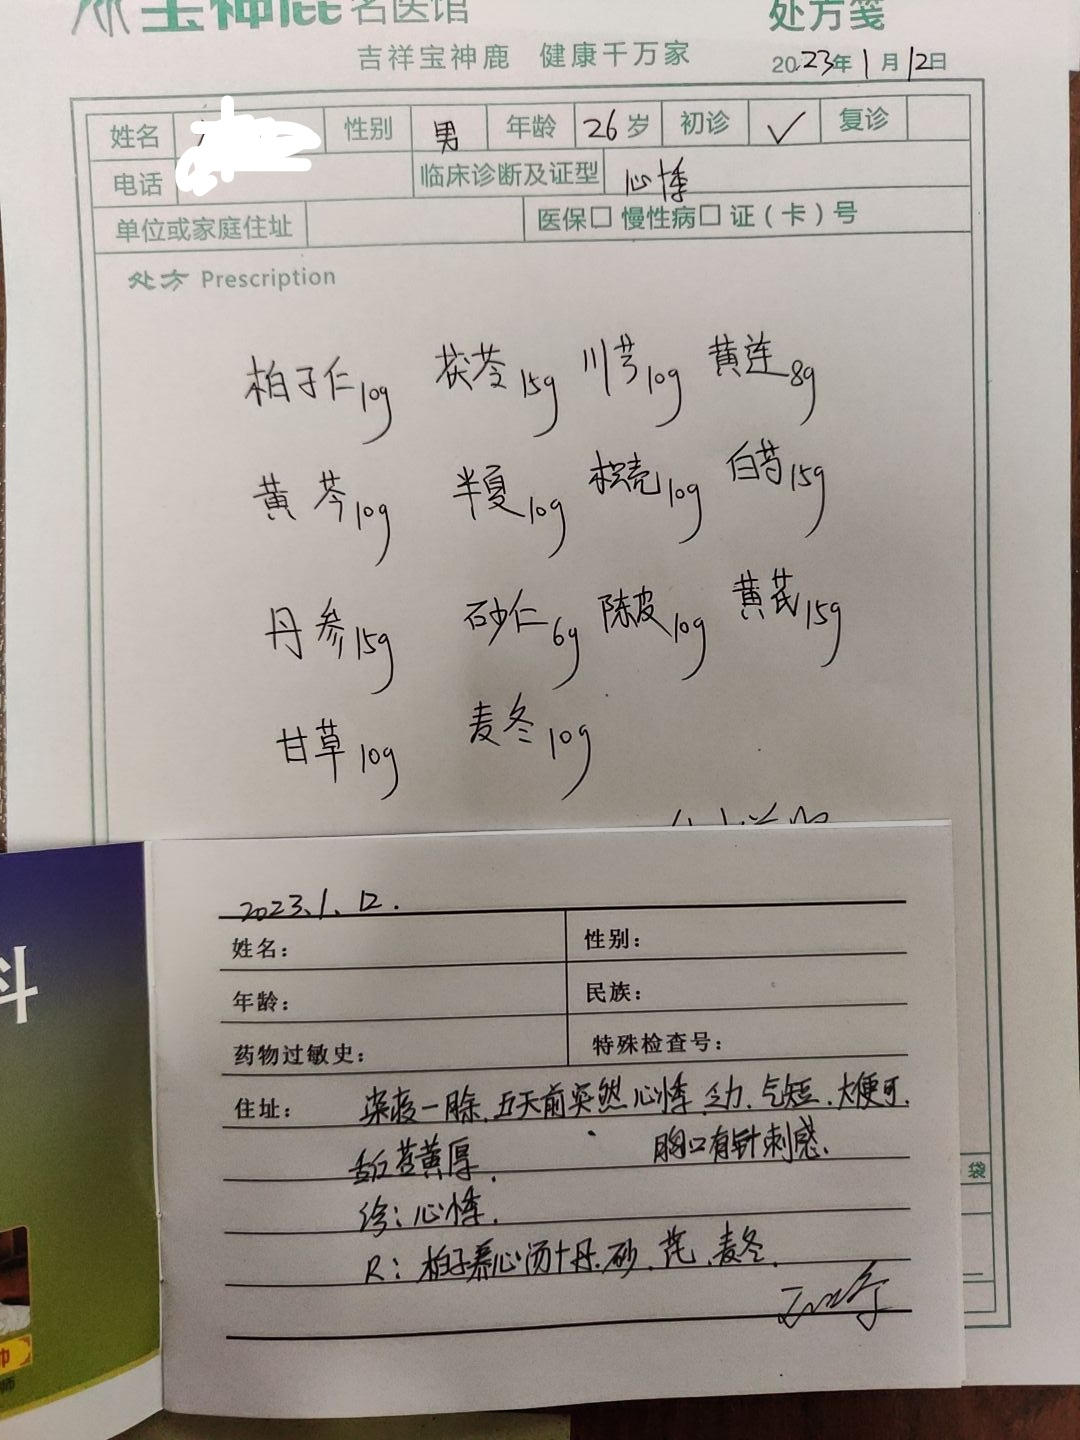 宝神鹿名医馆
处方笺
吉祥宝神鹿 健康千万家
2023年1月12日
姓名 性别 男 年龄 26岁 初诊 ✓ 复诊
电话 临床诊断及证型 心悸
单位或家庭住址 医保□ 慢性病□ 证(卡)号
处方 Prescription
柏子仁10g 茯苓15g 川芎10g 黄连8g
黄芩10g 半夏10g 枳壳10g 白芍15g
丹参15g 砂仁6g 陈皮10g 黄芪15g
甘草10g 麦冬10g
2023.1.12.
姓名: 性别:
年龄: 民族:
药物过敏史: 特殊检查号:
住址: 染疫一月余.五天前突然心悸.乏力.气短.大便可.
舌红苔黄厚. 胸口有针刺感.
诊:心悸.
R:柏子养心汤+丹.砂.芪.麦冬.
袋
科
师